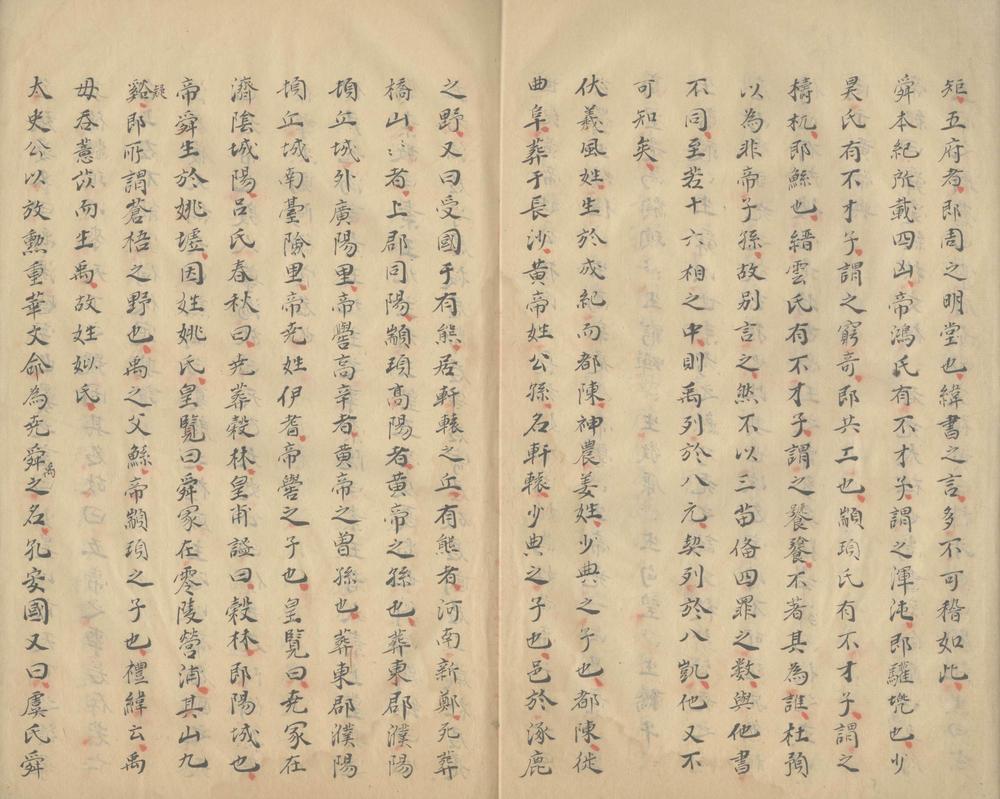 矩五府者即周之明堂也緯書之言多不可稽如此
舜本紀所載四凶帝鴻氏有不才子謂之渾沌即驩兠也少
昊氏有不才子謂之窮奇即共工也顓頊氏有不才子謂之
檮杌即鯀也縉雲氏有不才子謂之饕餮不著其為誰杜預
以為非帝子孫故別言之然不以三苗俻四罪之数與他書
不同至若十六相之中則禹列於八元契列於八凱他又不
可知矣
伏羲風姓生於成紀而都陳神農姜姓少典之子也都陳徙
曲阜葬于長沙黄帝姓公孫名軒轅少典之子也邑於涿鹿
之野又曰受國于有熊居軒轅之丘有熊者河南新鄭死葬
橋山〻者上郡同陽顓頊高陽者黄帝之孫也葬東郡濮陽
頃丘城外廣陽里帝嚳高辛者黄帝之曽孫也葬東郡濮陽
頃丘城南臺險里帝尭姓伊耆帝嚳之子也皇覽曰尭冢在
濟陰城陽吕氏春秋曰尭葬榖林皇甫謐曰榖林即陽城也
帝舜生於姚墟因姓姚氏皇覽曰舜冢在零陵營浦其山九
谿疑即所謂蒼梧之野也禹之父鯀帝顓頊之子也禮緯云禹
母吞薏苡而生禹故姓姒氏
太史公以放勲重華文命為尭舜禹之名孔安國又曰虞氏舜